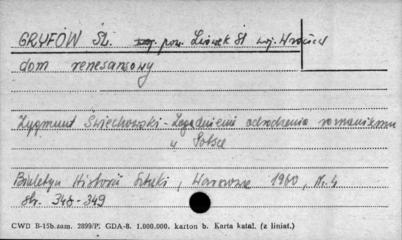 GRYFÓW Śl. pow. Lwówek Śl woj. Wrocław
dom renesansowy
Zygmunt Świechowski - Zagadnienie odrodzenia romanizmu
w Polsce
Biuletyn Historii Sztuki, Warszawa 1960, Nr. 4
str. 346-349
CWD B-15b.zam. 2899/P. GDA-8. 1.000.000. karton b. Karta katal. (z liniat.)